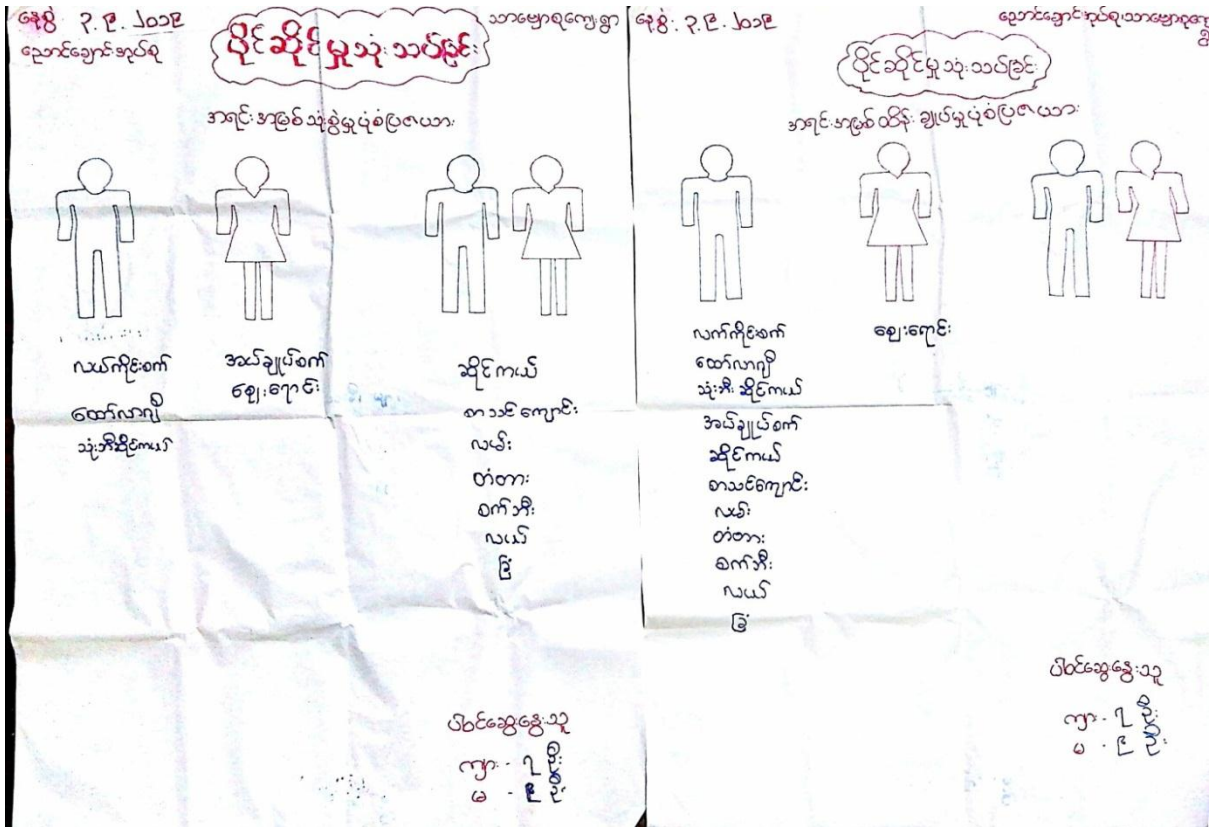 နေ့စွဲ ၃.၉.၂၀၁၉
ညောင်ချောင်းအုပ်စု
သာဗျောစုကျေးရွာ
ပိုင်ဆိုင်မှုသုံးသပ်ခြင်း
အရင်းအမြစ်သုံးစွဲမှုပုံစံပြဇယား
လယ်ကိုင်းစက်
ထော်လာဂျီ
သုံးဘီးဆိုင်ကယ်
အပ်ချုပ်စက်
ဈေးရောင်း
ဆိုင်ကယ်
စာသင်ကျောင်း
လမ်း
တံတား
စက်ဘီး
လယ်
ခြံ
ပါဝင်ဆွေးနွေးသူ
ကျား - ၇ ဦး
မ - ၉ ဦး
နေ့စွဲ. ၃.၉.၂၀၁၉
ညောင်ချောင်းအုပ်စု၊သာဗျောစုကျေးရွာ
ပိုင်ဆိုင်မှုသုံးသပ်ခြင်း
အရင်းအမြစ်ထိန်းချုပ်မှုပုံစံပြဇယား
လက်ကိုင်းစက်
ထော်လာဂျီ
သုံးဘီးဆိုင်ကယ်
အပ်ချုပ်စက်
ဆိုင်ကယ်
စာသင်ကျောင်း
လမ်း
တံတား
စက်ဘီး
လယ်
ခြံ
ဈေးရောင်း
ပါဝင်ဆွေးနွေးသူ
ကျား - ၇ ဦး
မ - ၉ ဦး